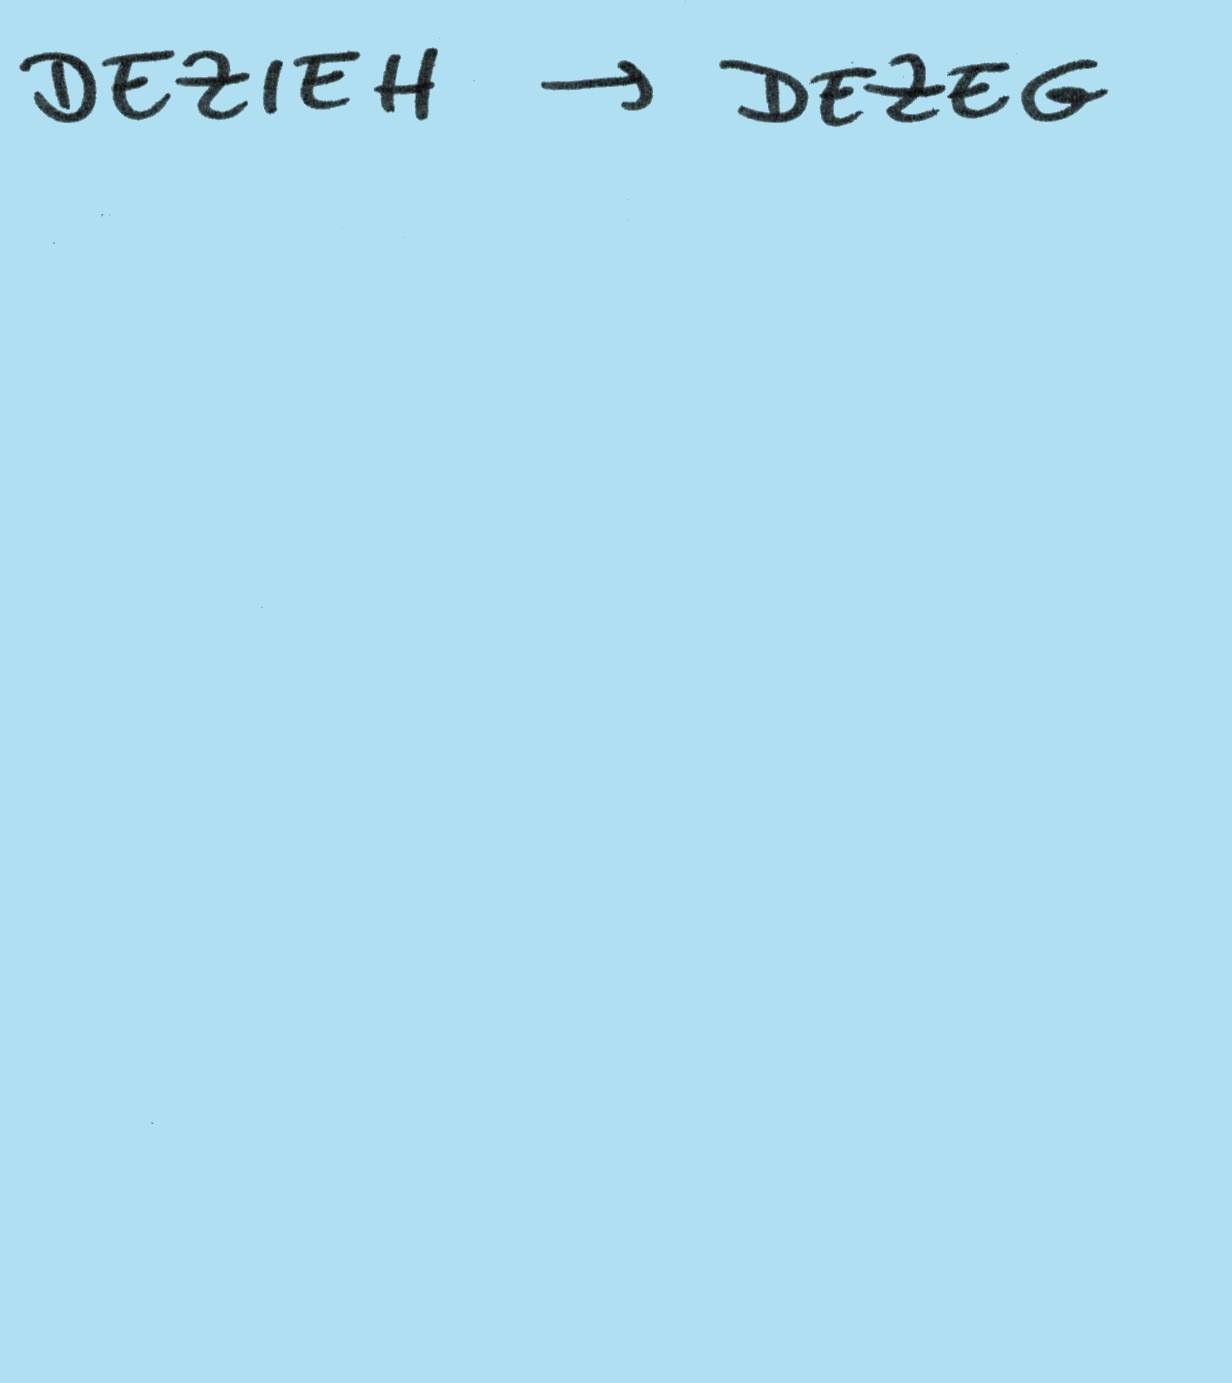 DEZIEH → DEZEG